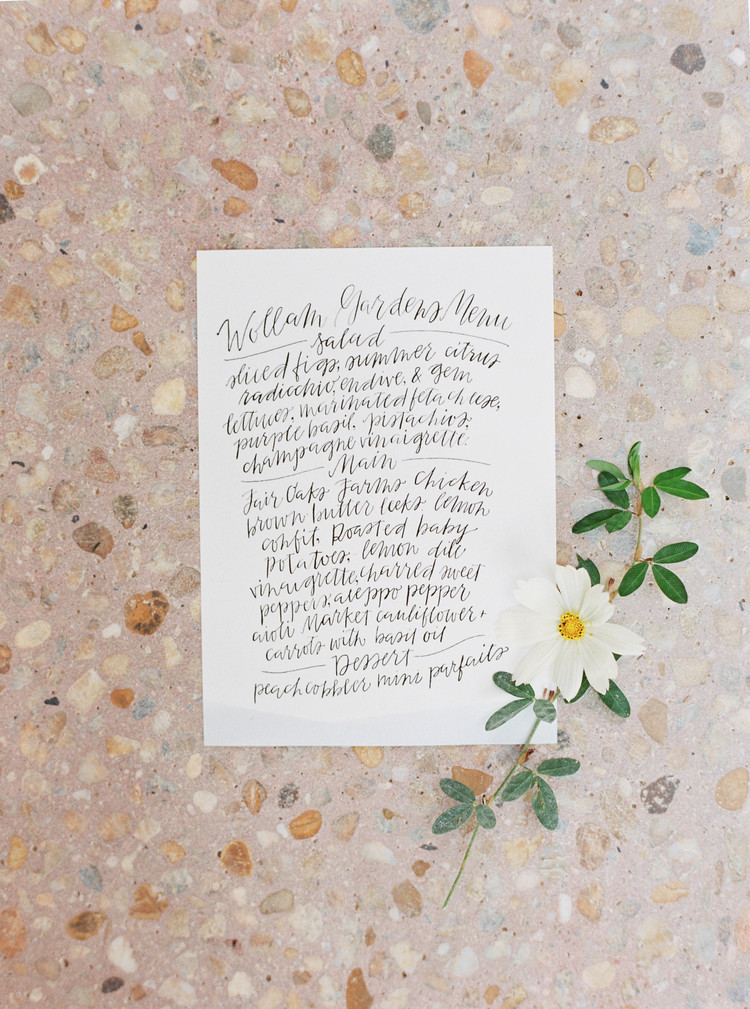 Wollam Gardens Menu
salad
sliced figs, summer citrus
radicchio, endive, & gem
lettuces, marinated feta cheese,
purple basil. pistachios;
champagne vinaigrette.
Main
Fair Oaks Farms Chicken
brown butter leeks lemon
confit, Roasted baby
potatoes, lemon dill
vinaigrette, charred sweet
peppers, aleppo pepper
aioli Market cauliflower +
carrots with basil oil
Dessert
peach cobbler mini parfaits